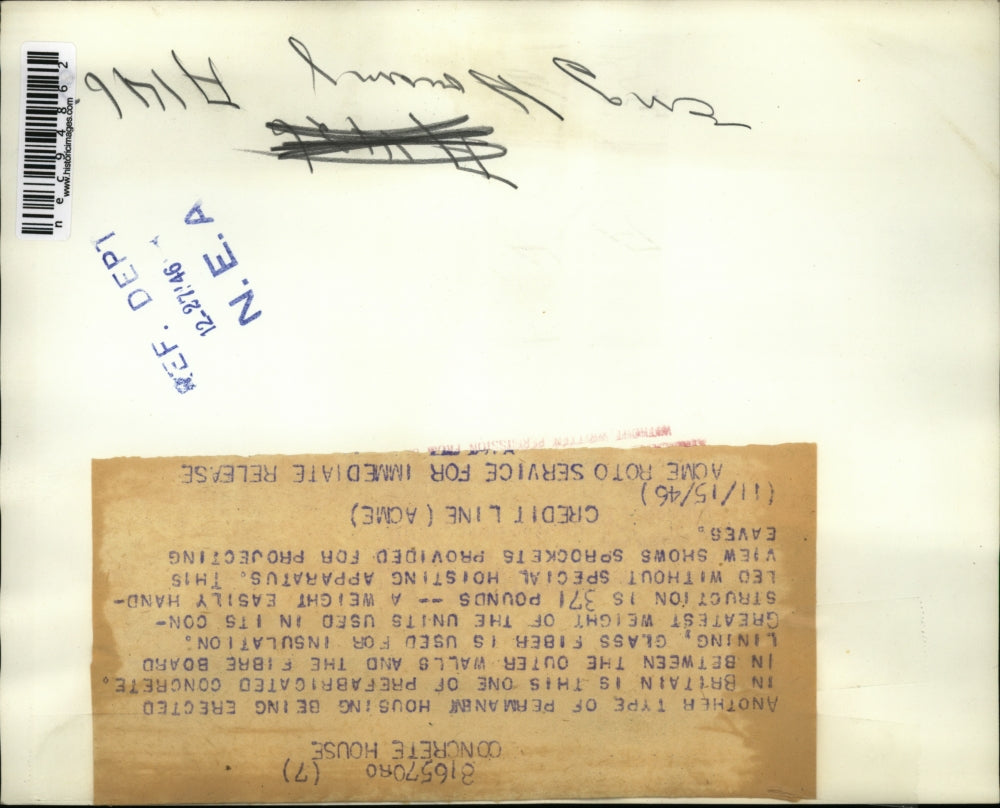 816570RO (7)
CONCRETE HOUSE
ANOTHER TYPE OF PERMANEN HOUSING BEING ERECTED
IN BRITAIN IS THIS ONE OF PREFABRICATED CONCRETE.
IN BETWEEN THE OUTER WALLS AND THE FIBRE BOARD
LINING, GLASS FIBER IS USED FOR INSULATION.
GREATEST WEIGHT OF THE UNITS USED IN ITS CON-
STRUCTION IS 371 POUNDS -- A WEIGHT EASILY HAND-
LED WITHOUT SPECIAL HOISTING APPARATUS. THIS
VIEW SHOWS SPROCKETS PROVIDED FOR PROJECTING
EAVES.
CREDIT LINE (ACME)
(11/15/46)
ACME ROTO SERVICE FOR IMMEDIATE RELEASE
WITHOUT WRITTEN PERMISSION FROM
REF. DEPT
12-27-46
N.E.A
Eng Housing
A146
nec94862
www.historicimages.com